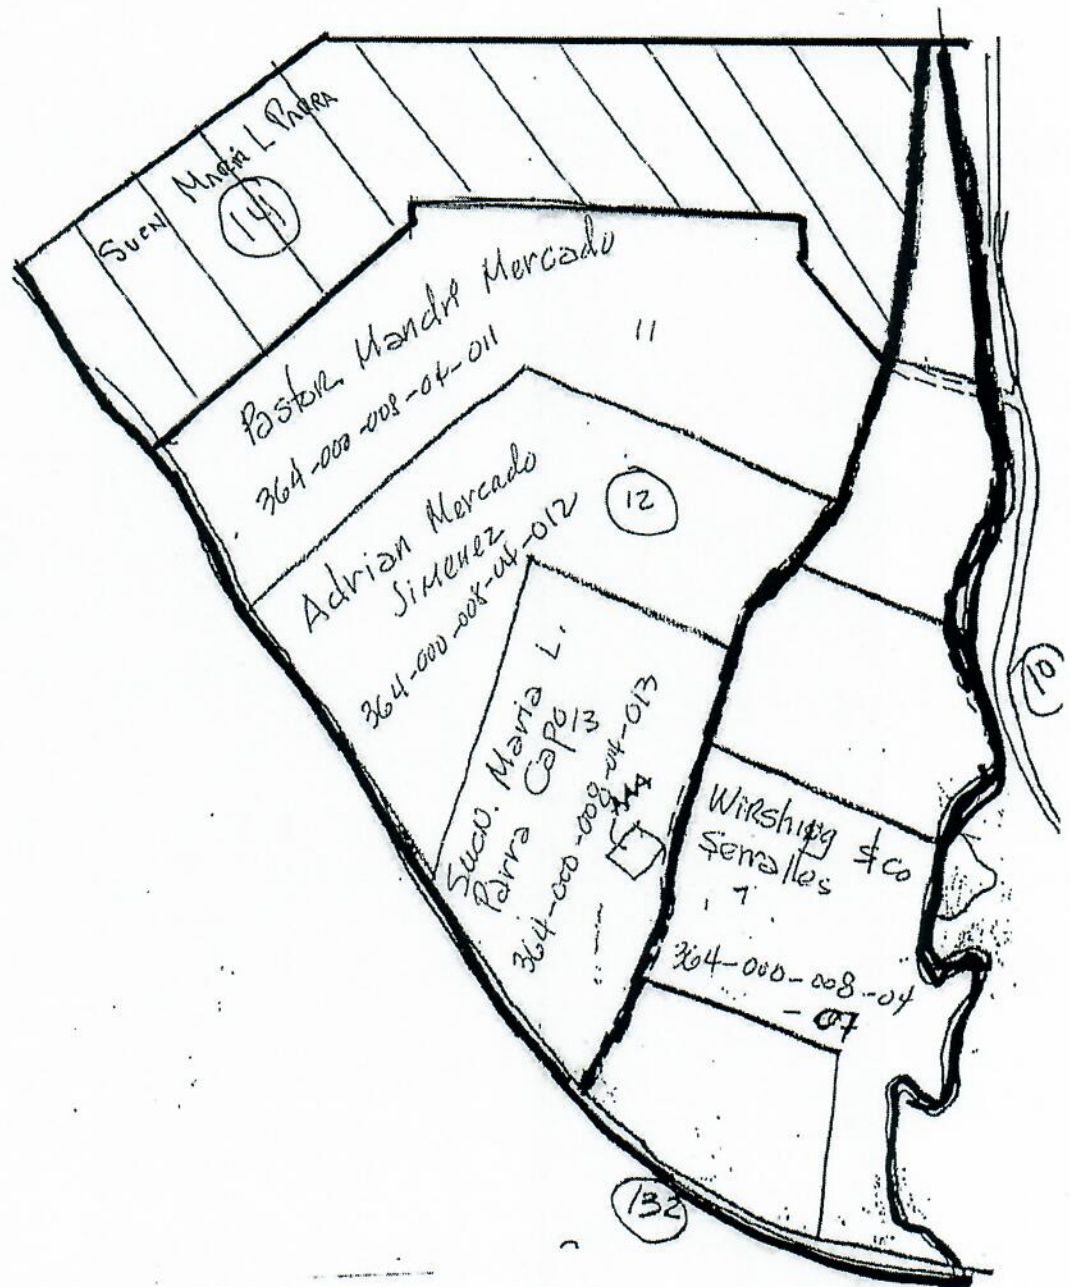 Sucn
Maria L Parra
141
Pastor Mandri Mercado
364-000-008-04-011
11
Adrian Mercado
Jimenez
364-000-008-04-012
12
Sucn. Maria L.
Parra Capo
13
364-000-008-04-013
AAA
Wirshing & Co
Serralles
7
364-000-008-04
-07
10
132